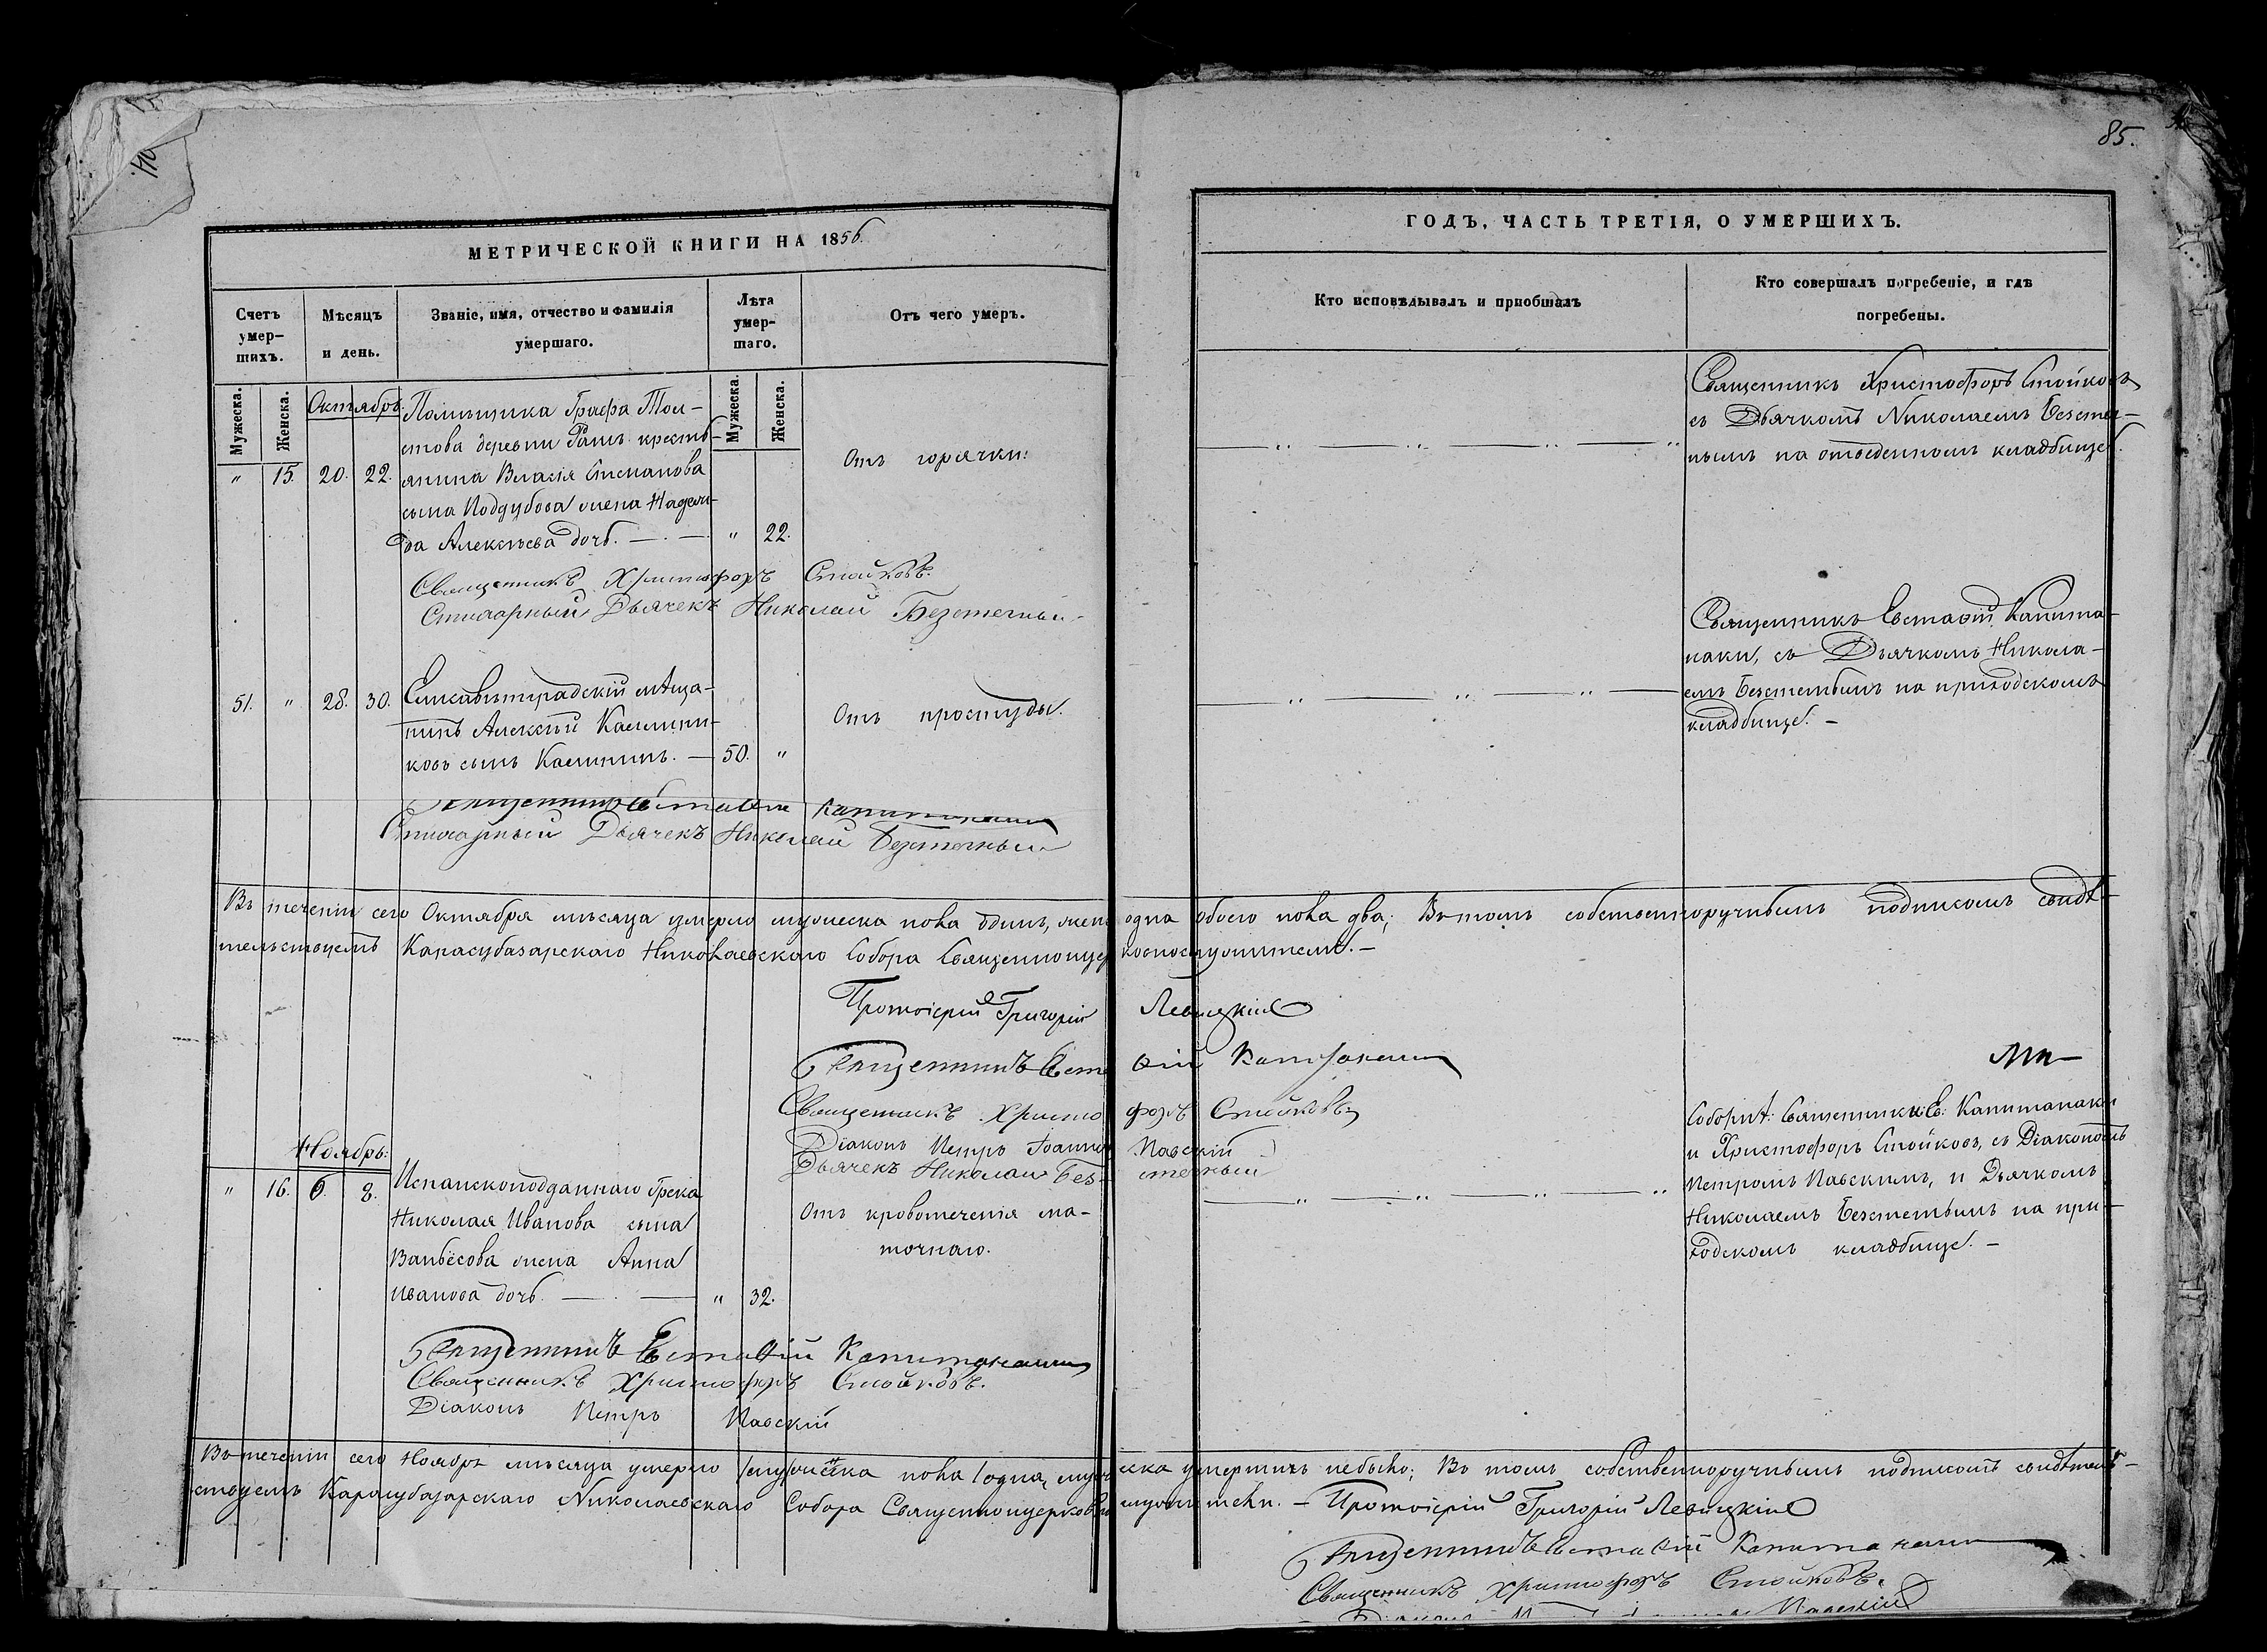 85.
МЕТРИЧЕСКОЙ КНИГИ НА 1856.
Счетъ умер–шихъ.
Мѣсяцъ и день.
Званіе, имя, отчество и фамилія умершаго.
Лѣта умер–шаго.
Отъ чего умеръ.
Мужеска.
Женска.
Мужеска.
Женска.
Октябрь.
Помѣщика Графа Тол–
стова деревни крестья–
" 15. 20. 22. янина Власія Степанова
сына Поддубова жена Надеж–
да Алексѣева дочь. — " 22.
Отъ горячки.
Священникъ Христофоръ Стойковъ.
Стихарный Дьячекъ Николай Безстечный
51. " 28. 30. Елисаветградскій мѣща–
нинъ Алексѣй Калинни–
ковъ сынъ Калининъ. — 50. "
Отъ простуды.
Священникъ Евстафій Капитанаки
Стихарный Дьячекъ Николай Безстечный
ГОДЪ, ЧАСТЬ ТРЕТІЯ, О УМЕРШИХЪ.
Кто исповѣдывалъ и пріобщалъ
Кто совершалъ погребеніе, и гдѣ погребены.
Священникъ Христофоръ Стойковъ
съ Дьячкомъ Николаемъ Безстеч–
нымъ на отведенномъ кладбищѣ.
Священникъ Евстафій Капита–
наки, съ Дьячкомъ Никола–
емъ Безстечнымъ на приходскомъ
кладбищѣ. –
Въ теченіи сего Октября мѣсяца умерло мужеска пола одинъ, женс одна обоего пола два; Въ томъ собственноручнымъ подписомъ свидѣ–
тельствуемъ Карасубазарскаго Николаевскаго Собора Священноцерковнослужители. –
Протоіерей Григорій Левицкій
Священникъ Евстафій Капитанаки
Священникъ Христофоръ Стойковъ
Діаконъ Петръ Павскій
Дьячекъ Николай Безстечный
Ноябрь:
" 16. 6. 8. Испанскоподданнаго Грека
Николая Иванова сына
жена Анна
Иванова дочь. — " 32.
Отъ кровотеченія ма–
точнаго.
Соборнѣ: Священники Ев: Капитанаки
и Христофоръ Стойковъ, съ Діакономъ
Петромъ Павскимъ, и Дьячкомъ
Николаемъ Безстечнымъ на при–
ходскомъ кладбищѣ. –
Священникъ Евстафій Капитанаки
Священникъ Христофоръ Стойковъ.
Діаконъ Петръ Павскій
Въ теченіи сего Ноября мѣсяца умерло пола одна, мужеска умершихъ небыло; Въ томъ собственноручнымъ подписомъ свидѣтель–
ствуемъ Карасубазарскаго Николаевскаго Собора Священноцерковнослужители. – Протоіерей Григорій Левицкій
Священникъ Евстафій Капитанаки
Священникъ Христофоръ Стойковъ.
Павскій